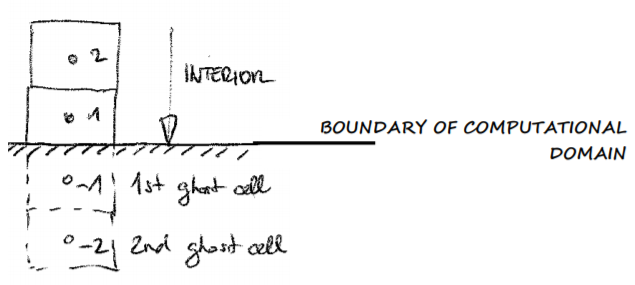 2
INTERIOR
1
BOUNDARY OF COMPUTATIONAL
DOMAIN
-1 1st ghost cell
-2 2nd ghost cell